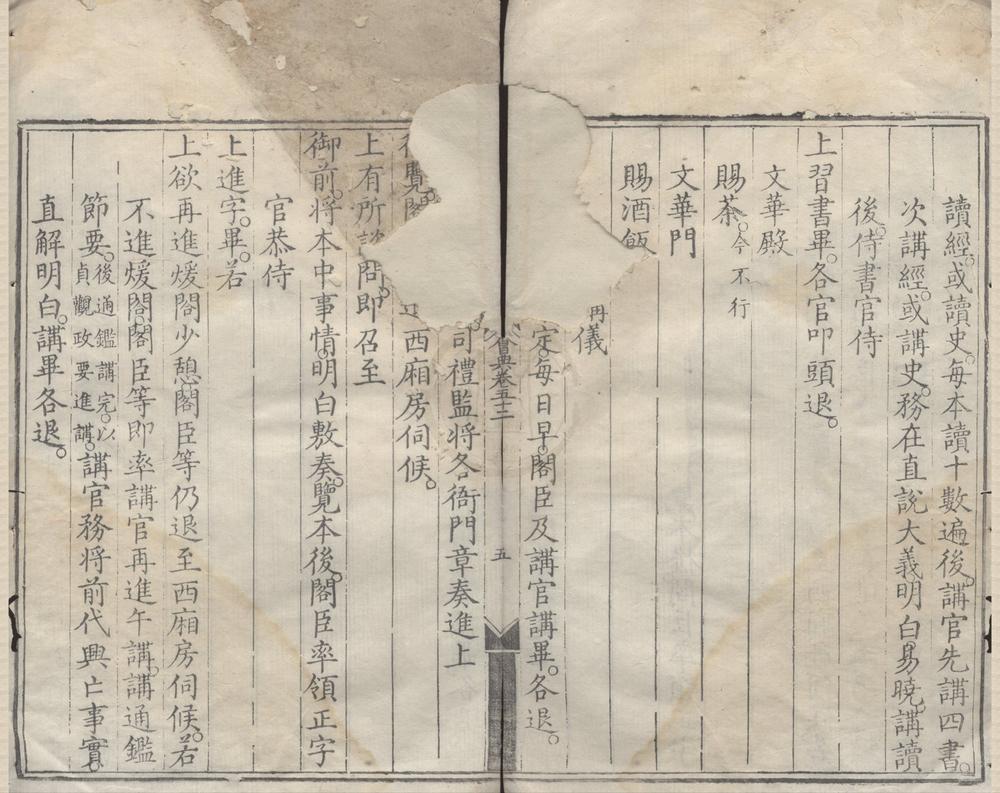 讀經。或讀史。每本讀十數遍後。講官先講四書。
次講經。或講史。務在直說大義明白易曉。講讀
後。侍書官侍
上習書畢。各官叩頭退。
文華殿
賜茶。今不行
文華門
賜酒飯
儀
定。每日早。閣臣及講官講畢。各退。
會典卷五十二
五
司禮監將各衙門章奏進上
覽。閣
西廂房伺候。
上有所
問。即召至
御前。將本中事情。明白敷奏。覽本後。閣臣率領正字
官恭侍
上進字。畢。若
上欲再進煖閣少憩。閣臣等仍退至西廂房伺候。若
不進煖閣。閣臣等即率講官再進午講。講通鑑
節要。後通鑑講完。以
貞觀政要進講。
講官務將前代興亡事實。
直解明白。講畢各退。